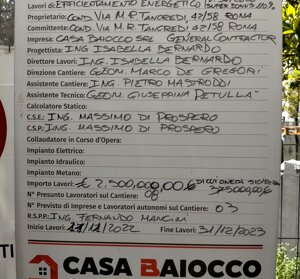 Lavori di: EFFICIENTAMENTO ENERGETICO SUPER BONUS 110%
Proprietario: COND. VIA M.R. TANCREDI, 42/58 ROMA
Committente: COND. VIA M.R. TANCREDI 42/58 ROMA
Impresa: CASA BAIOCCO SRL GENERAL CONTRACTOR
Progettista: ING ISABELLA BERNARDO
Direttore Lavori: ING. ISABELLA BERNARDO
Direzione Cantiere: GEOM. MARCO DE GREGORI
Assistente Cantiere: ING. PIETRO MASTRODDI
Assistente Tecnico: GEOM. GIUSEPPINA PETULLA'
Calcolatore Statico:
C.S.E.: ING. MASSIMO DI PROSPERO
C.S.P.: ING. MASSIMO DI PROSPERO
Collaudatore in Corso d'Opera:
Impianto Elettrico:
Impianto Idraulico:
Impianto Metano:
Importo Lavori: € 2.500,000,00 € DI CUI ONERI SICUREZZA
N° Presunto Lavoratori sul Cantiere: 08
N° Previsto di Imprese e Lavoratori autonomi sul cantiere: 03
R.S.P.P.: ING. FERNANDO MANCINI
Inizio Lavori: /11/2022 Fine Lavori: 31/12/2023
CASA BAIOCCO
TI